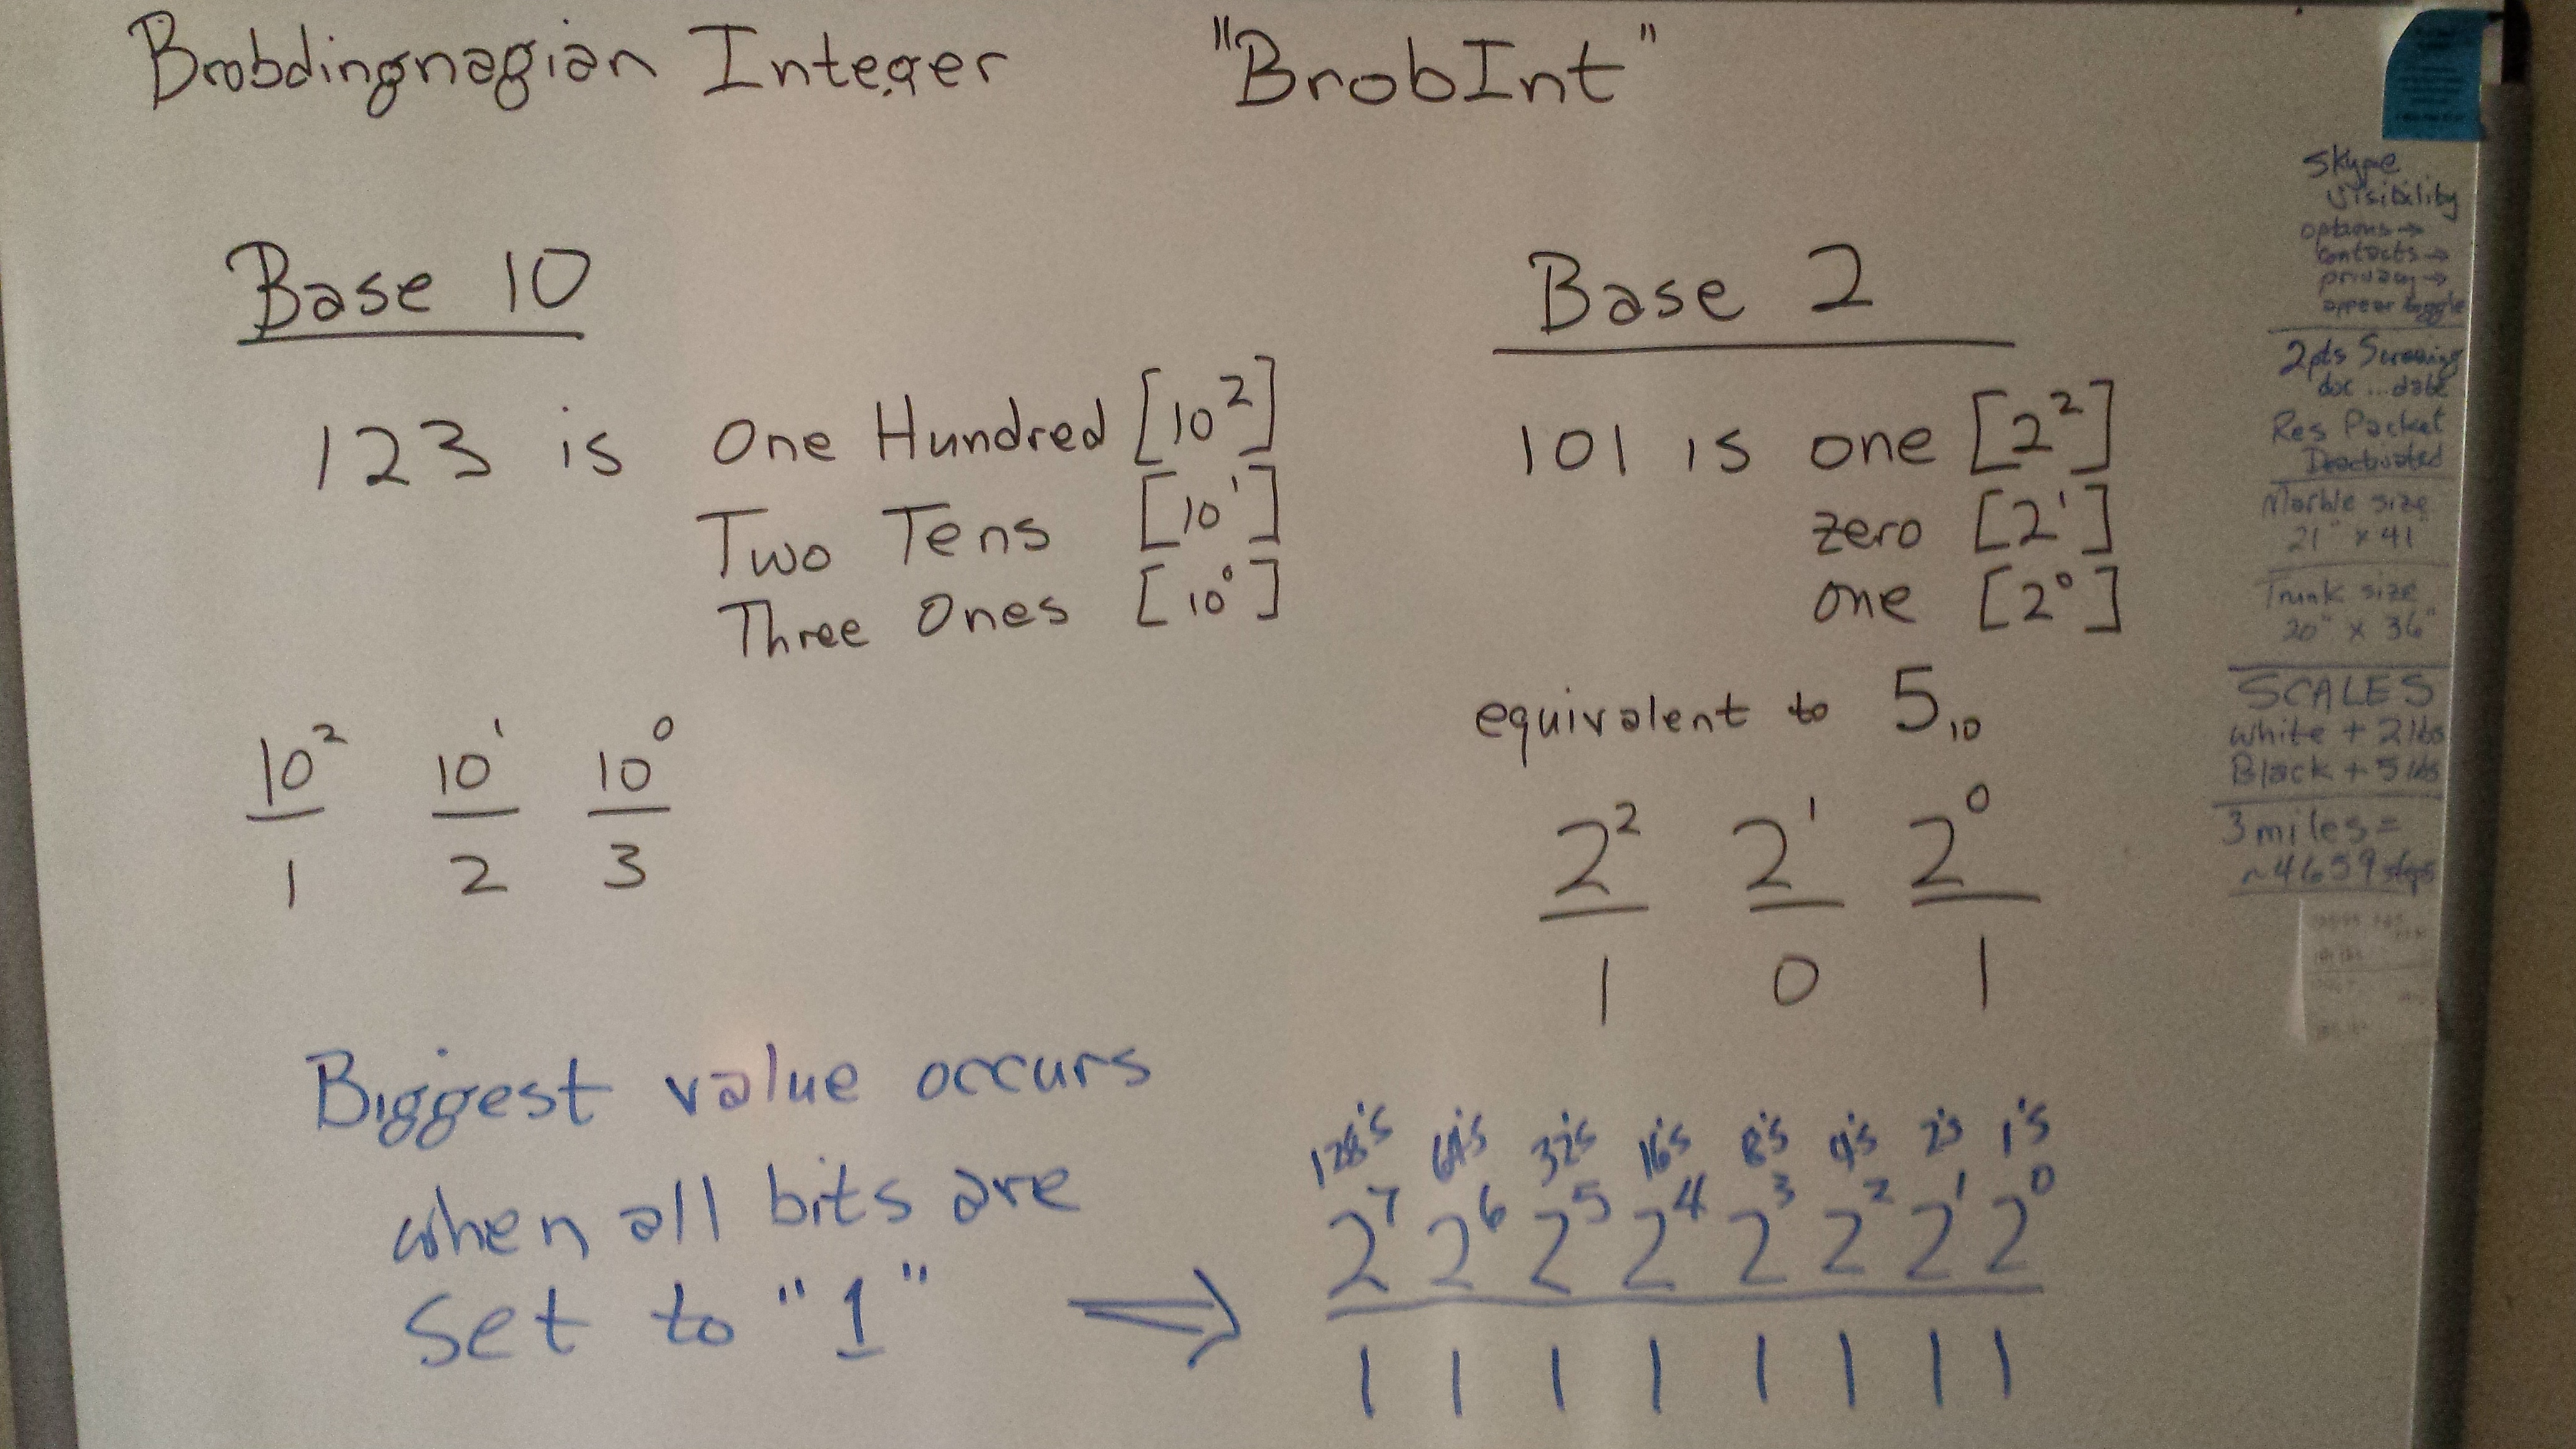 Brobdingnagian Integer "BrobInt"
Base 10
123 is One Hundred [10²]
Two Tens [10¹]
Three Ones [10⁰]
10² 10¹ 10⁰
1 2 3
Base 2
101 is one [2²]
zero [2¹]
one [2⁰]
equivalent to 5₁₀
2² 2¹ 2⁰
1 0 1
Biggest value occurs
when all bits are
set to "1" ⇒
128's 64's 32's 16's 8's 4's 2's 1's
2⁷ 2⁶ 2⁵ 2⁴ 2³ 2² 2¹ 2⁰
1 1 1 1 1 1 1 1
Skype
Visibility
options →
contacts →
privacy →
appear toggle
2pts
doc ... date
Res Packet
Deactivated
Marble size
21" x 41"
Trunk size
20" x 36"
SCALES
white + 2 lbs
Black + 5 lbs
3 miles =
~4659 steps